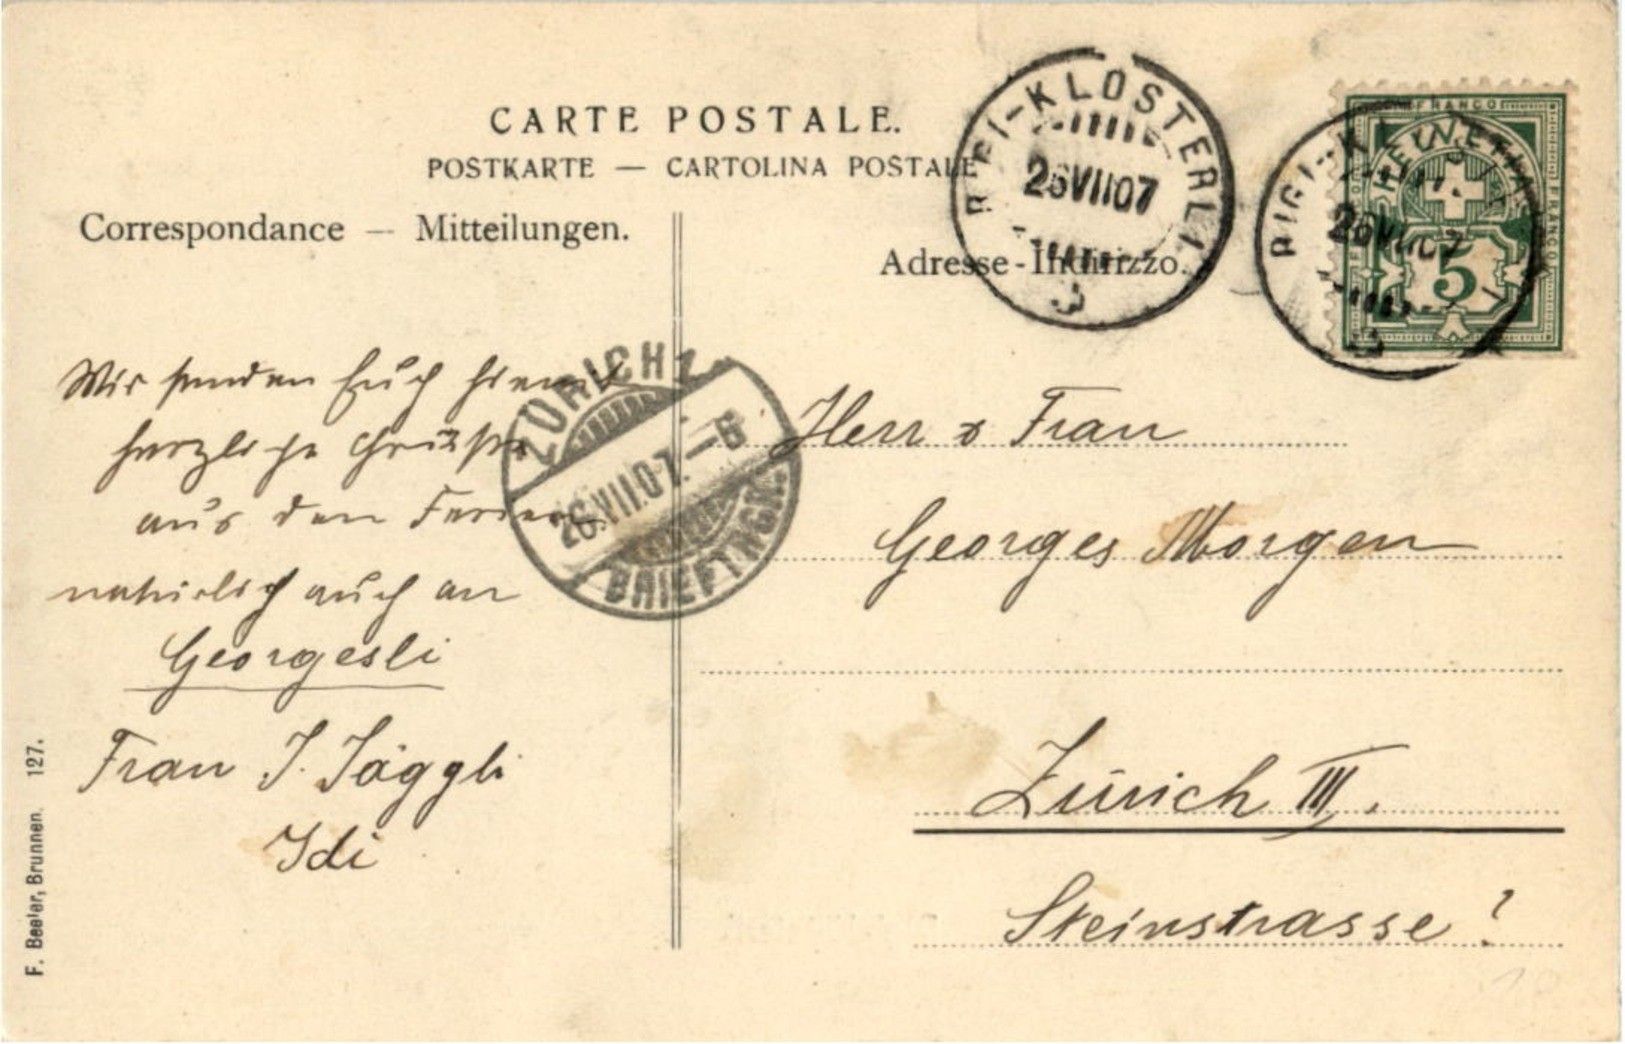 CARTE POSTALE.
POSTKARTE — CARTOLINA POSTALE
Correspondance — Mitteilungen.
Adresse - Indirizzo.
RIGI-KLOSTERLI
26 VII 07
RIGI-K
26 VII 07
FRANCO
HELVETIA
FRANCO
5
ZÜRICH 1
26.VII.07.-6
BRIEFTRGK.
Wir senden Euch hiemit
herzliche Grüsse
aus den Ferien
natürlich auch an
Georgesli
Frau J. Jäggli
Idi
Herr & Frau
Georges Morgen
Zürich III.
Steinstrasse ?
F. Beeler, Brunnen. 127.